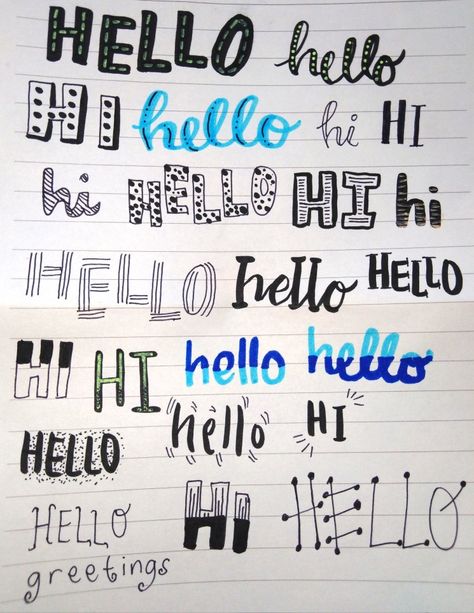 HELLO hello
HI hello hi HI
hi HELLO HI hi
HELLO hello HELLO
HI HI hello hello
HELLO hello HI
HELLO Hi HELLO
greetings